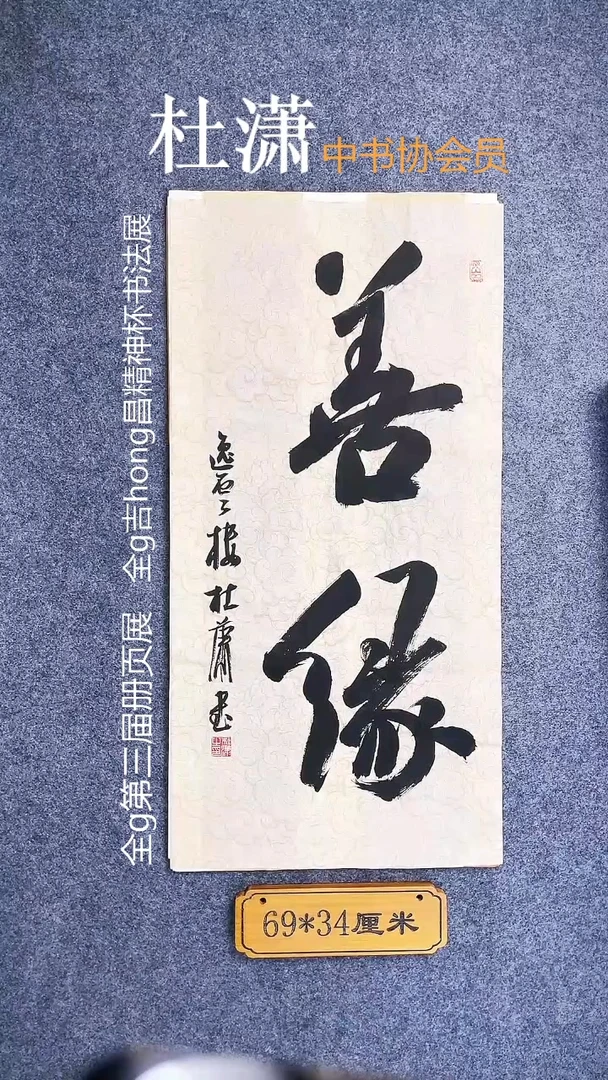 杜潇 中书协会员
全g第三届册页展 全g吉hong昌精神杯书法展
善缘
逸雲楼杜萧书
69*34厘米